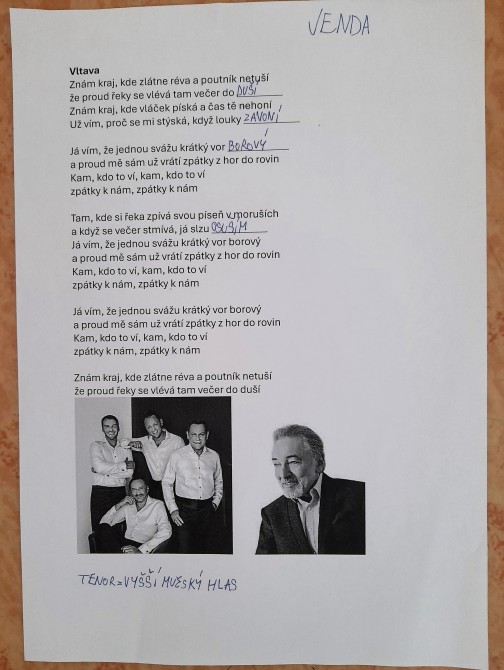 VENDA
Vltava
Znám kraj, kde zlátne réva a poutník netuší
že proud řeky se vlévá tam večer do DUŠÍ
Znám kraj, kde vláček píská a čas tě nehoní
Už vím, proč se mi stýská, když louky ZAVONÍ
Já vím, že jednou svážu krátký vor BOROVÝ
a proud mě sám už vrátí zpátky z hor do rovin
Kam, kdo to ví, kam, kdo to ví
zpátky k nám, zpátky k nám
Tam, kde si řeka zpívá svou píseň v moruších
a když se večer stmívá, já slzu OSUŠÍM
Já vím, že jednou svážu krátký vor borový
a proud mě sám už vrátí zpátky z hor do rovin
Kam, kdo to ví, kam, kdo to ví
zpátky k nám, zpátky k nám
Já vím, že jednou svážu krátký vor borový
a proud mě sám už vrátí zpátky z hor do rovin
Kam, kdo to ví, kam, kdo to ví
zpátky k nám, zpátky k nám
Znám kraj, kde zlátne réva a poutník netuší
že proud řeky se vlévá tam večer do duší
TENOR=VYŠŠÍ MUŽSKÝ HLAS